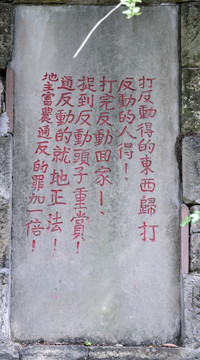 打反動得的東西歸打
反動的人得！、
打完反動回家！、
捉到反動頭子重賞！
通反動的就地正法！
地主富農通反的罪加一倍！